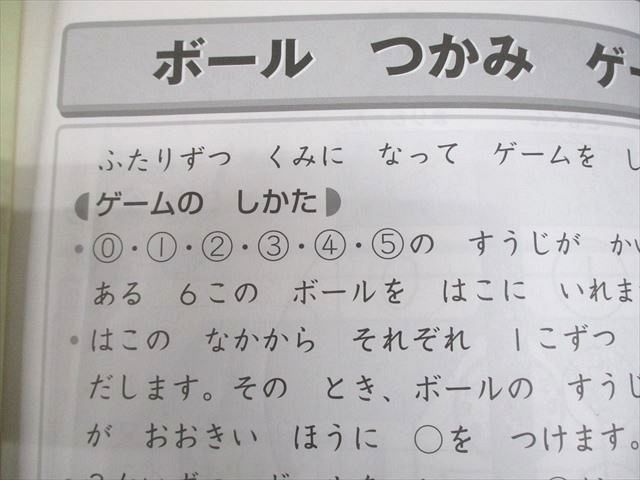 ボール つかみ ゲー
ふたりずつ くみに なって ゲームを し
ゲームの しかた
・⓪・①・②・③・④・⑤の すうじが かい
ある 6この ボールを はこに いれま
・はこの なかから それぞれ 1こずつ
だします。その とき、ボールの すうじ
が おおきい ほうに ○を つけます。